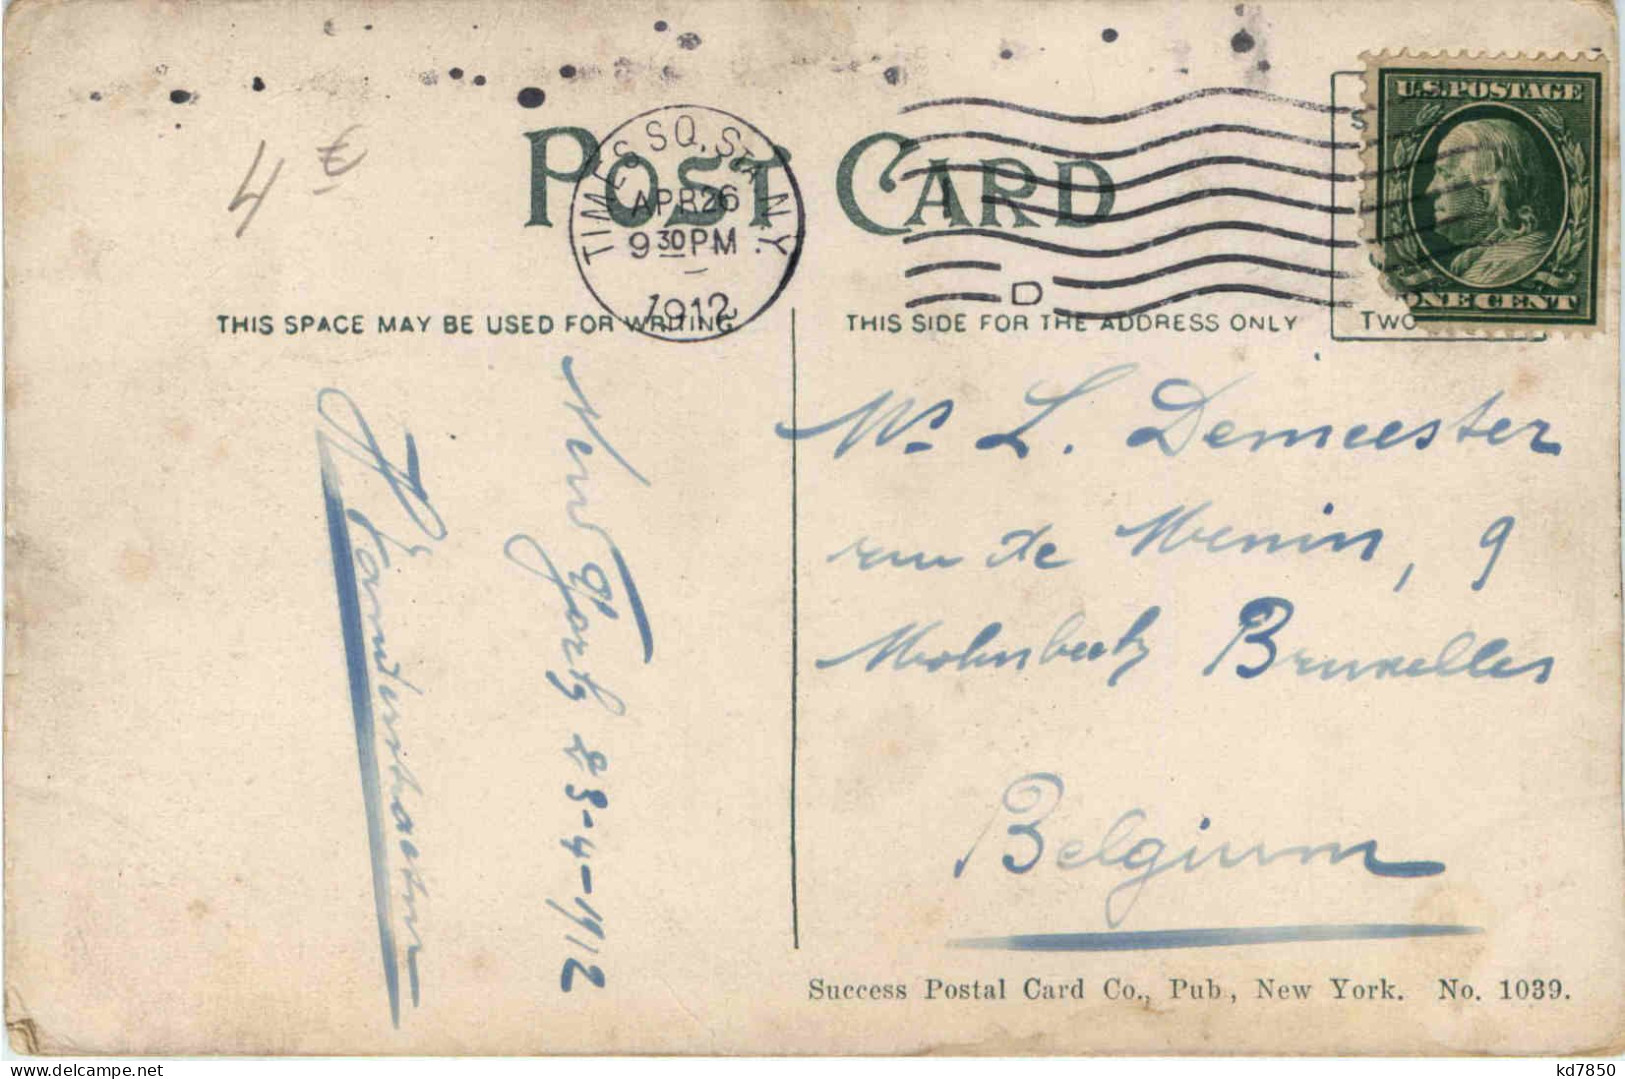 4 F
POST CARD
TIMES SQ. STA. N.Y.
APR 26
9 30 PM
1912
D
U.S. POSTAGE
ONE CENT
THIS SPACE MAY BE USED FOR WRITING
THIS SIDE FOR THE ADDRESS ONLY
TWO
New York 23-4-1912
Mr L. Demeester
rue de Menin, 9
Molenbeek Bruxelles
Belgium
Success Postal Card Co., Pub., New York. No. 1039.
kd7850